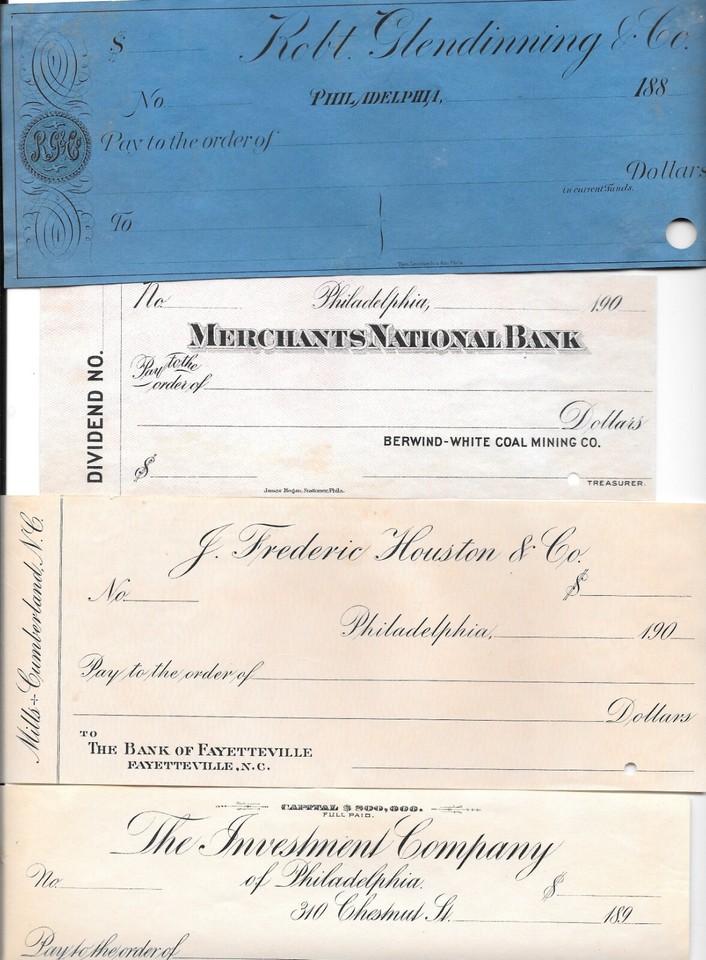 $ Robt. Glendinning & Co.
No. PHILADELPHIA, 188
RG&Co
Pay to the order of
Dollars
in current funds.
To
DIVIDEND NO.
No. Philadelphia, 190
MERCHANTS NATIONAL BANK
Pay to the
order of
Dollars
BERWIND-WHITE COAL MINING CO.
$
TREASURER.
James Hogan, Stationer, Phila.
Mills-Cumberland, N.C.
J. Frederic Houston & Co.
No. $
Philadelphia, 190
Pay to the order of
Dollars
TO
THE BANK OF FAYETTEVILLE
FAYETTEVILLE, N.C.
CAPITAL $
FULL PAID.
The Investment Company
No. of Philadelphia. $
310 Chestnut St. 189
Pay to the order of